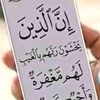 إِنَّ الَّذِينَ
يَخْشَوْنَ رَبَّهُم بِالْغَيْبِ
لَهُم مَّغْفِرَةٌ
وَأَجْرٌ